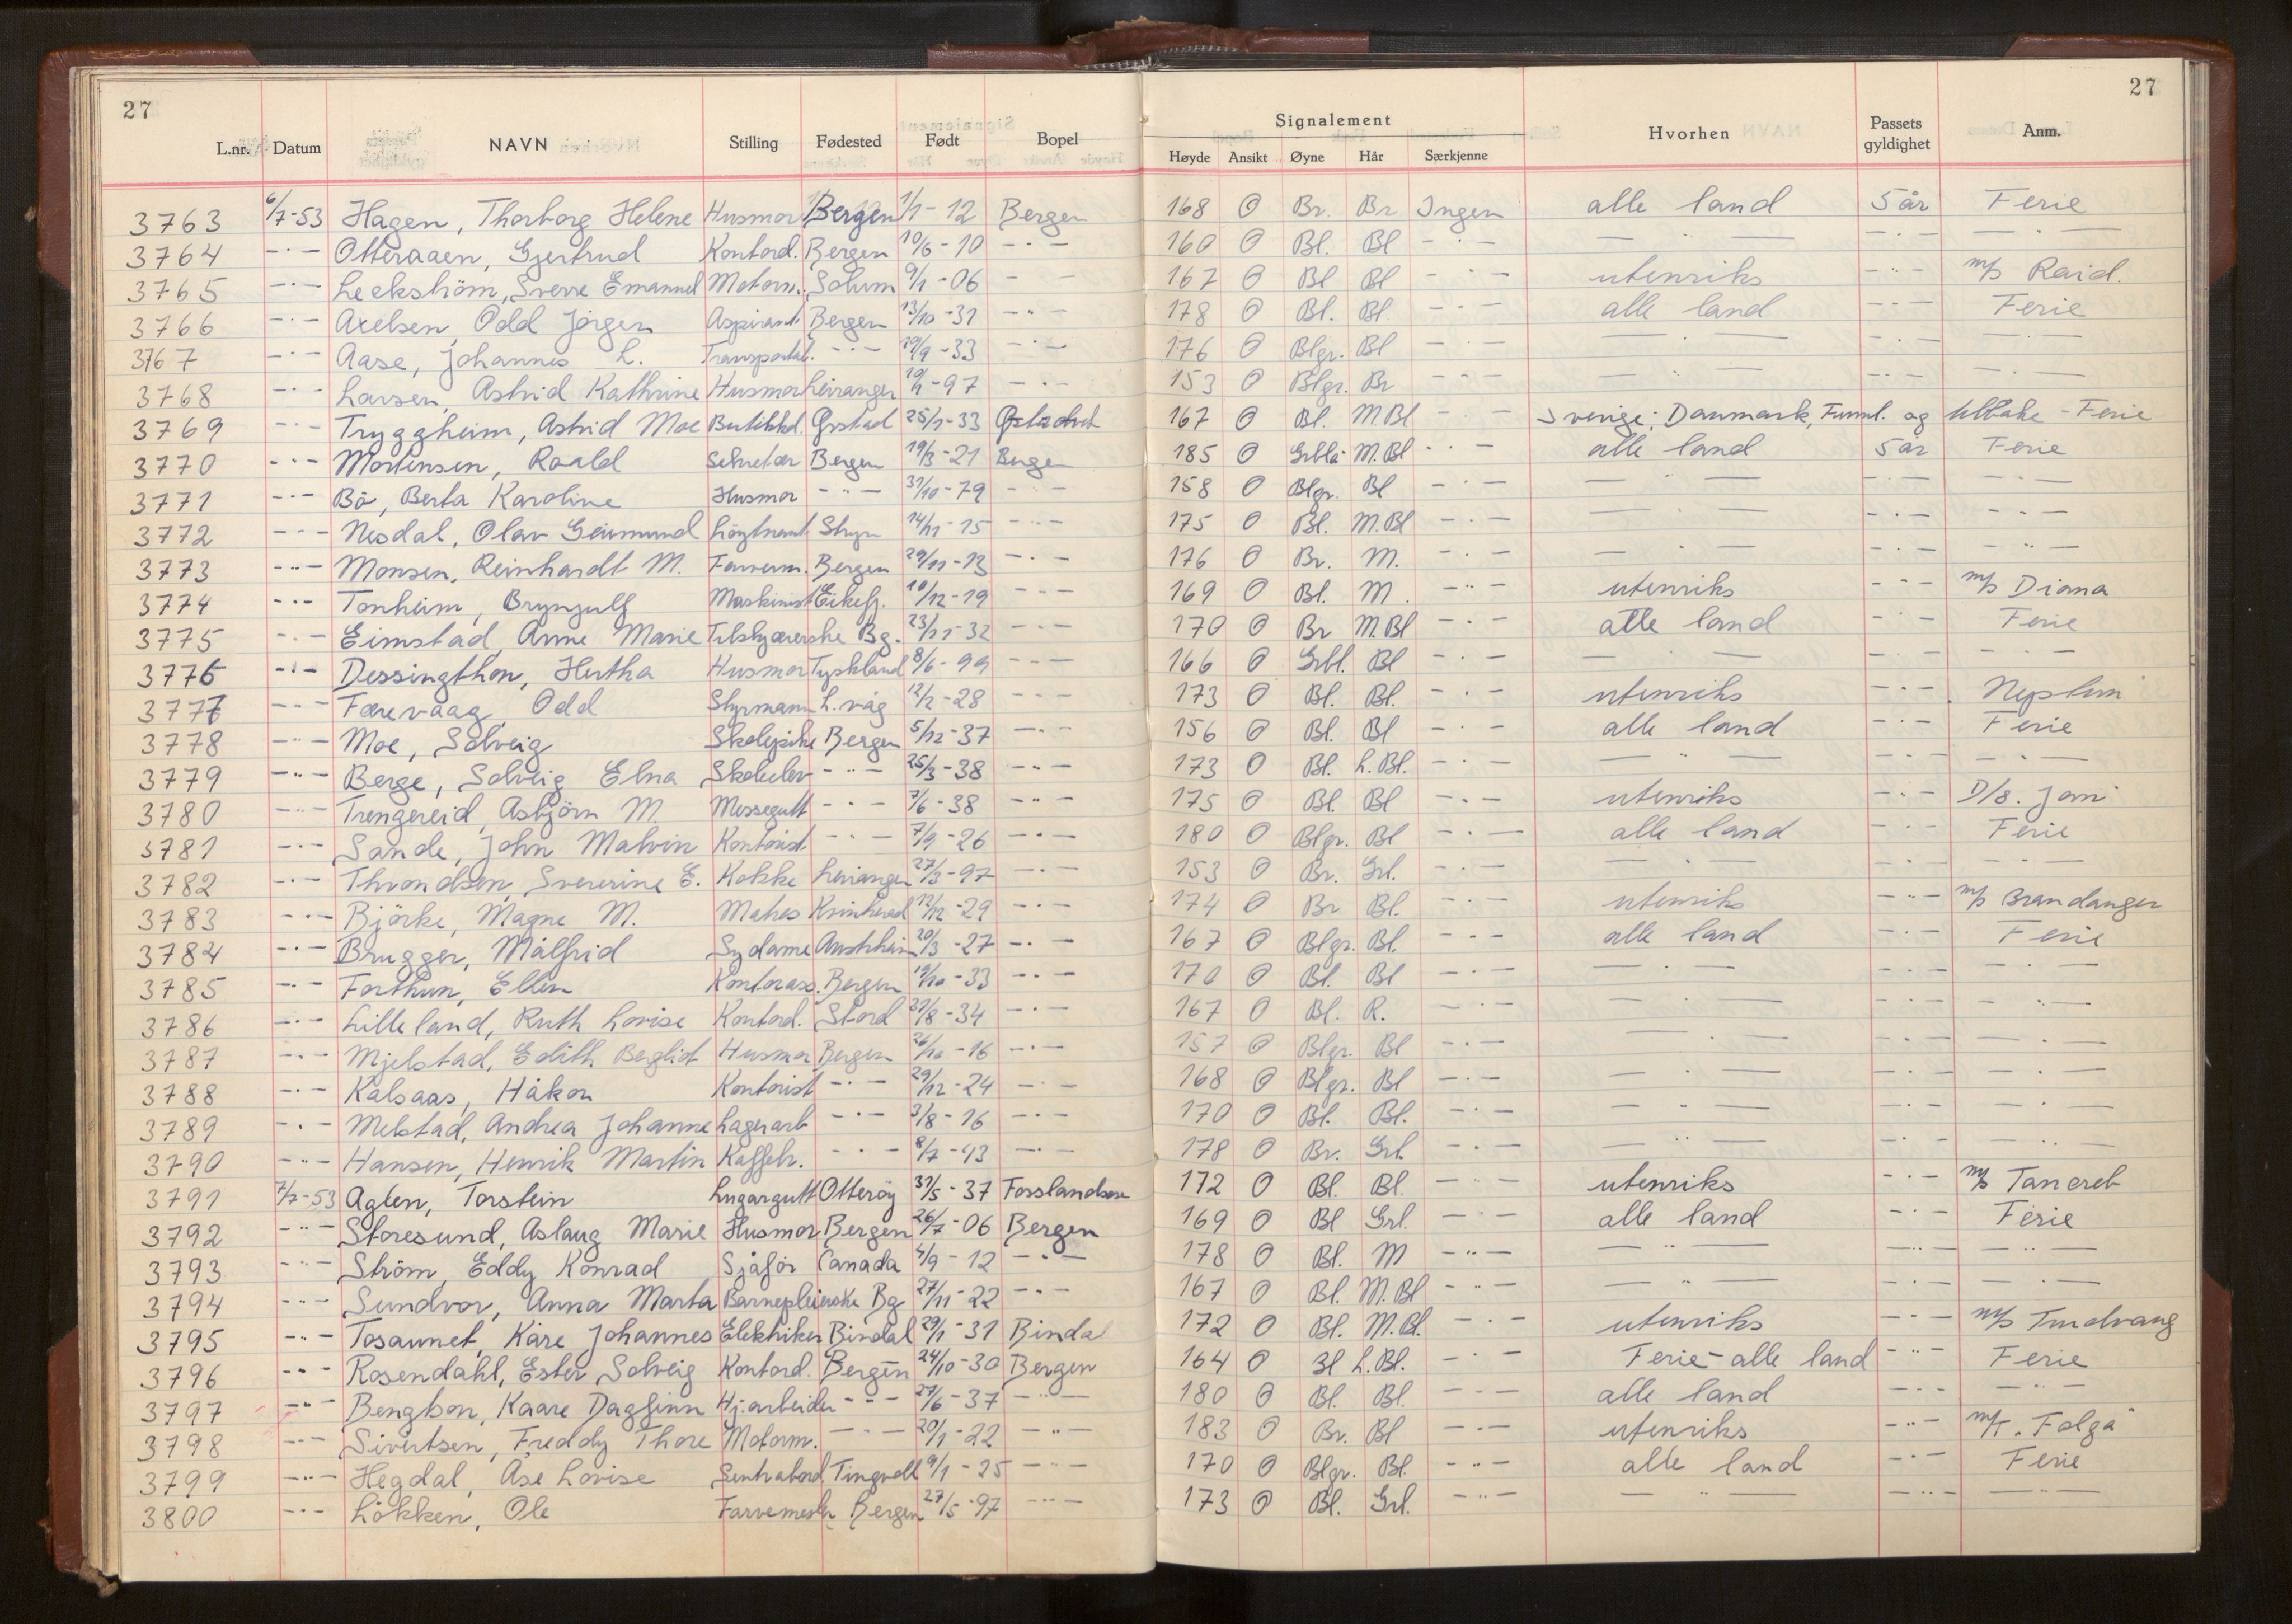 27
27
L.nr. Datum NAVN Stilling Fødested Født Bopel Signalement Hvorhen Passets gyldighet Anm.
Høyde Ansikt Øyne Hår Særkjenne
3763 6/7-53 Hagen, Thorborg Helene Husmor Bergen 1/1-12 Bergen 168 O Br. Br Ingen alle land 5 år Ferie
3764 -"- Otteraaen, Gjertrud Kontord. Bergen 10/6-10 -"- 160 O Bl. Bl -"- -"- -"- -"-
3765 -"- Leekström, Sverre Emanuel Motorm. Solum 9/1-06 - - 167 O Bl Bl -"- utenriks -"- m/s Raid.
3766 -"- Axelsen, Odd Jörgen Aspirant Bergen 13/10-31 -"- 178 O Bl. Bl. -"- alle land -"- Ferie
3767 -"- Aase, Johannes L. -"- 19/9-33 -"- 176 O Blgr. Bl -"- -"- -"- -"-
3768 -"- Larsen, Astrid Kathrine Husmor Leiranger -97 -"- 153 O Blgr. Br -"- -"- -"- -"-
3769 -"- Tryggheim, Astrid Moe Butikkd. 25/1-33 167 O Bl. M.Bl -"- Sverige, Danmark, og tilbake - Ferie
3770 -"- Mortensen, Roald Sekretær Bergen 19/3-21 Bergen 185 O Grblå M.Bl -"- alle land 5 år Ferie
3771 -"- Bö, Berta Karoline Husmor -"- 31/10-79 -"- 158 O Blgr. Bl -"- -"- -"- -"-
3772 -"- Nesdal, Olav Geirmund Löytnant Stryn 14/11-15 -"- 175 O Bl. M.Bl -"- -"- -"- -"-
3773 -"- Monsen, Reinhardt M. Farverm. Bergen 29/11-13 -"- 176 O Br. M. -"- -"- -"- -"-
3774 -"- Tonheim, Brynjulf Maskinist Eikefj. 10/12-19 -"- 169 O Bl. M. -"- utenriks -"- m/s Diana
3775 -"- Eimstad, Anne Marie Tilskjærerske Bg. 23/11-32 -"- 170 O Br M.Bl -"- alle land -"- Ferie
3776 -"- Dessingthon, Hertha Husmor Tyskland 8/6-99 -"- 166 O Grbl. Bl -"- -"- -"- -"-
3777 -"- Færevaag, Odd Styrmann L.våg 12/2-28 -"- 173 O Bl. Bl. -"- utenriks -"-
3778 -"- Moe, Solveig Skolepike Bergen 5/12-37 -"- 156 O Bl. Bl -"- alle land -"- Ferie
3779 -"- Berge, Solveig Elna Skoleelev -"- 25/3-38 -"- 173 O Bl. L.Bl. -"- -"- -"- -"-
3780 -"- Trengereid, Asbjörn M. Messegutt -"- 7/6-38 -"- 175 O Bl. Bl -"- utenriks -"- D/s.
3781 -"- Sande, John Malvin Kontorist -"- 7/9-26 -"- 180 O Blgr. Bl -"- alle land -"- Ferie
3782 -"- Throndsen, Severine E. Kokke Leiranger 27/3-97 -"- 153 O Br. Grl. -"- -"- -"- -"-
3783 -"- Björke, Magne M. Matros Kvinherad 12/12-29 -"- 174 O Br Bl. -"- utenriks -"- m/s Brandanger
3784 -"- Brugger, Målfrid Sydame Austrheim 20/3-27 -"- 167 O Blgr. Bl. -"- alle land -"- Ferie
3785 -"- Forthun, Ellen Kontorass. Bergen 19/10-33 -"- 170 O Bl. Bl -"- -"- -"- -"-
3786 -"- Lilleland, Ruth Lovise Kontord. Stord 21/8-34 -"- 167 O Bl. R. -"- -"- -"- -"-
3787 -"- Mjelstad, Edith Bergliot Husmor Bergen 26/10-16 -"- 157 O Blgr. Bl -"- -"- -"- -"-
3788 -"- Kalsaas, Håkon Kontorist -"- 29/12-24 -"- 168 O Blgr. Bl -"- -"- -"- -"-
3789 -"- Melstad, Andrea Johanne Lagerarb -"- 3/8-16 -"- 170 O Bl. Bl. -"- -"- -"- -"-
3790 -"- Hansen, Henrik Martin Kaffebr. -"- 8/7-93 -"- 178 O Br. Grl. -"- -"- -"- -"-
3791 7/7-53 Aglen, Torstein Lugargutt Otteröy 31/5-37 172 O Bl. Bl. -"- utenriks -"- m/s Tancred
3792 -"- Storesund, Aslaug Marie Husmor Bergen 26/7-06 Bergen 169 O Bl Grl. -"- alle land -"- Ferie
3793 -"- Ström, Eddy Konrad Sjåför Canada 4/9-12 -"- 178 O Bl. M -"- -"- -"- -"-
3794 -"- Sundvor, Anna Marta Barnepleierske Bg 27/11-22 -"- 167 O Bl. M.Bl -"- -"- -"- -"-
3795 -"- Tosaunet, Kåre Johannes Elektriker Bindal 29/1-31 Bindal 172 O Bl. M.Bl. -"- utenriks -"- m/s Tindvang
3796 -"- Rosendahl, Ester Solveig Kontord. Bergen 24/10-30 Bergen 164 O Bl L.Bl. -"- Ferie - alle land -"- Ferie
3797 -"- Bengtson, Kaare Dagfinn Hj.arbeider -"- 27/6-37 -"- 180 O Bl. Bl. -"- alle land -"- -"-
3798 -"- Sivertsen, Freddy Thore Motorm. -"- 20/1-22 -"- 183 O Br. Bl -"- utenriks -"- m/t. "Folga"
3799 -"- Hegdal, Åse Lovise Sentralbord Tingvoll 9/1-25 -"- 170 O Blgr. Bl. -"- alle land -"- Ferie
3800 -"- Lökken, Ole Farvemester Bergen 27/5-97 -"- 173 O Bl. Grl. -"- -"- -"- -"-